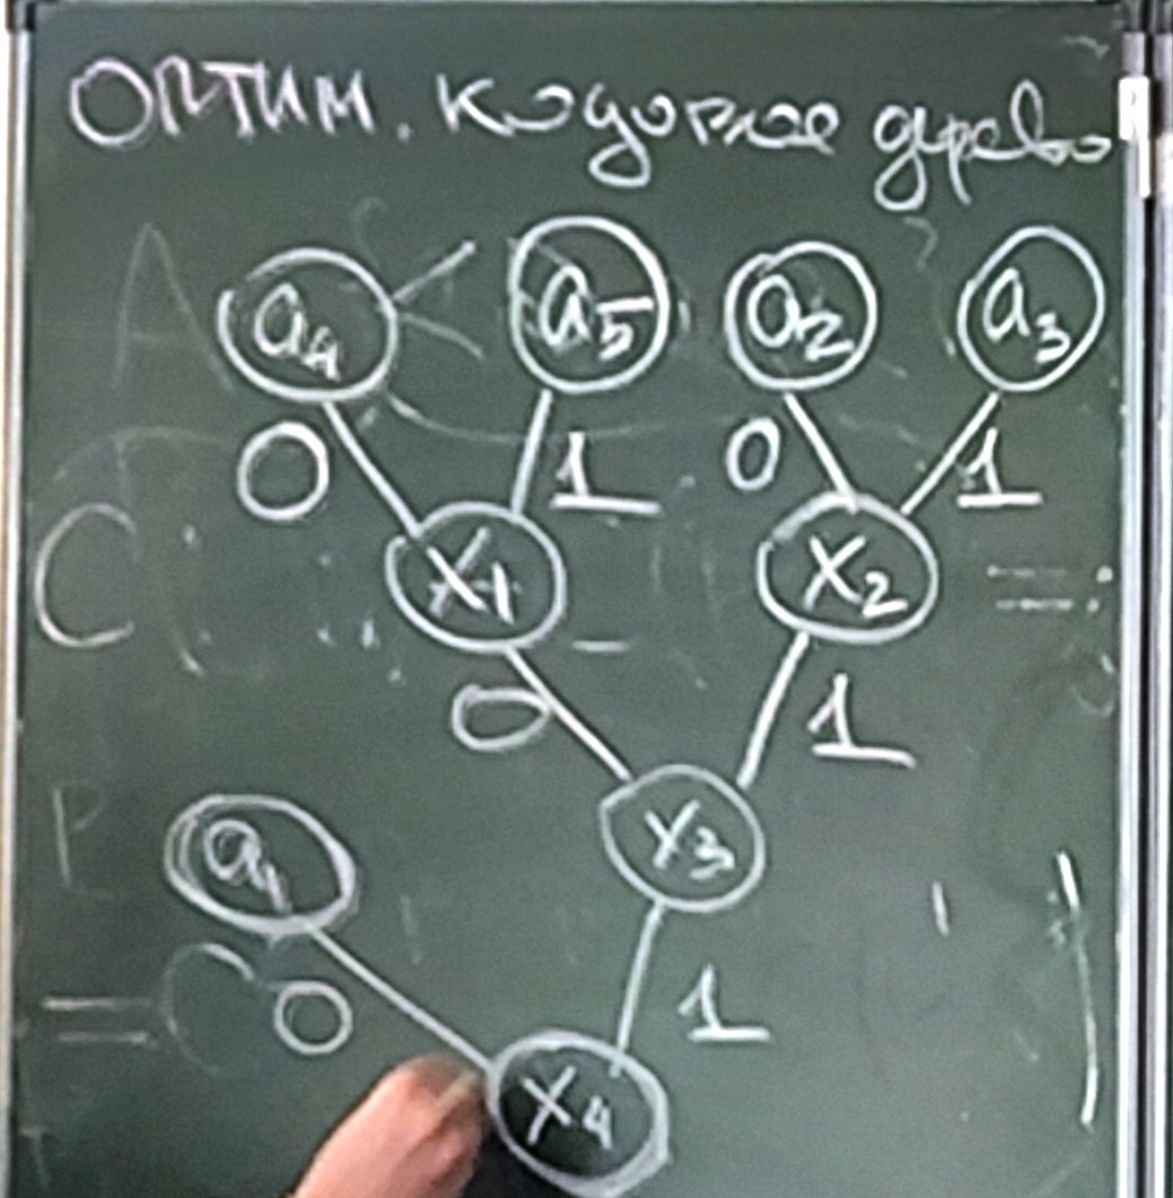 ОПТИМ. кодовое дерево
a4 a5 a2 a3
0 1 0 1
x1 x2
0 1
x3
a1
0 1
x4